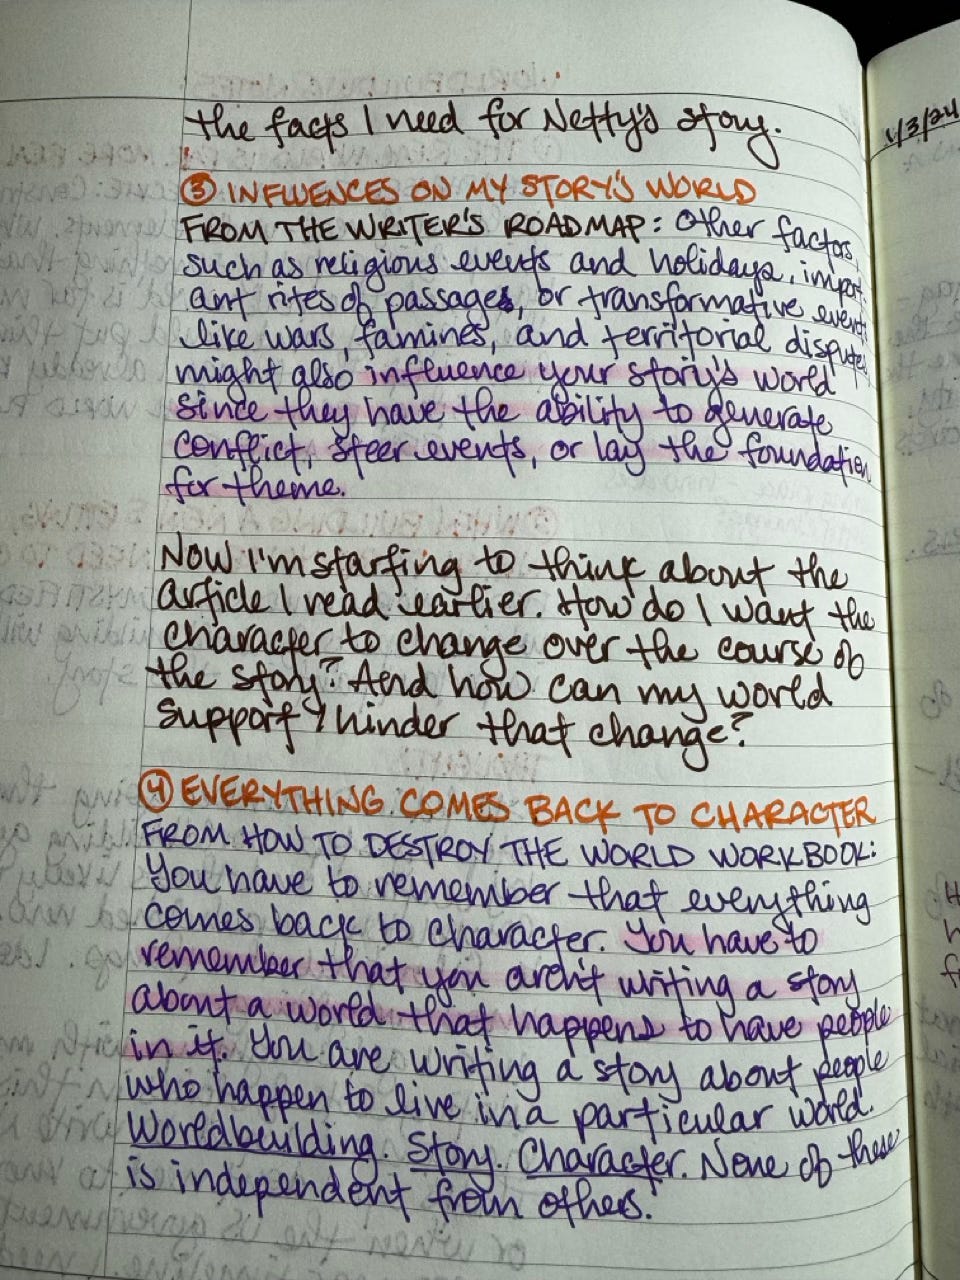 the facts I need for Netty's story.
1/3/24
③ INFLUENCES ON MY STORY'S WORLD
FROM THE WRITER'S ROADMAP: Other factors,
such as religious events and holidays, import-
ant rites of passages, or transformative events
like wars, famines, and territorial disputes
might also influence your story's world
since they have the ability to generate
conflict, steer events, or lay the foundation
for theme.
Now I'm starting to think about the
article I read earlier. How do I want the
character to change over the course of
the story? And how can my world
support & hinder that change?
④ EVERYTHING COMES BACK TO CHARACTER
FROM HOW TO DESTROY THE WORLD WORKBOOK:
You have to remember that everything
comes back to character. You have to
remember that you aren't writing a story
about a world that happens to have people
in it. You are writing a story about people
who happen to live in a particular world.
Worldbuilding. Story. Character. None of these
is independent from others.